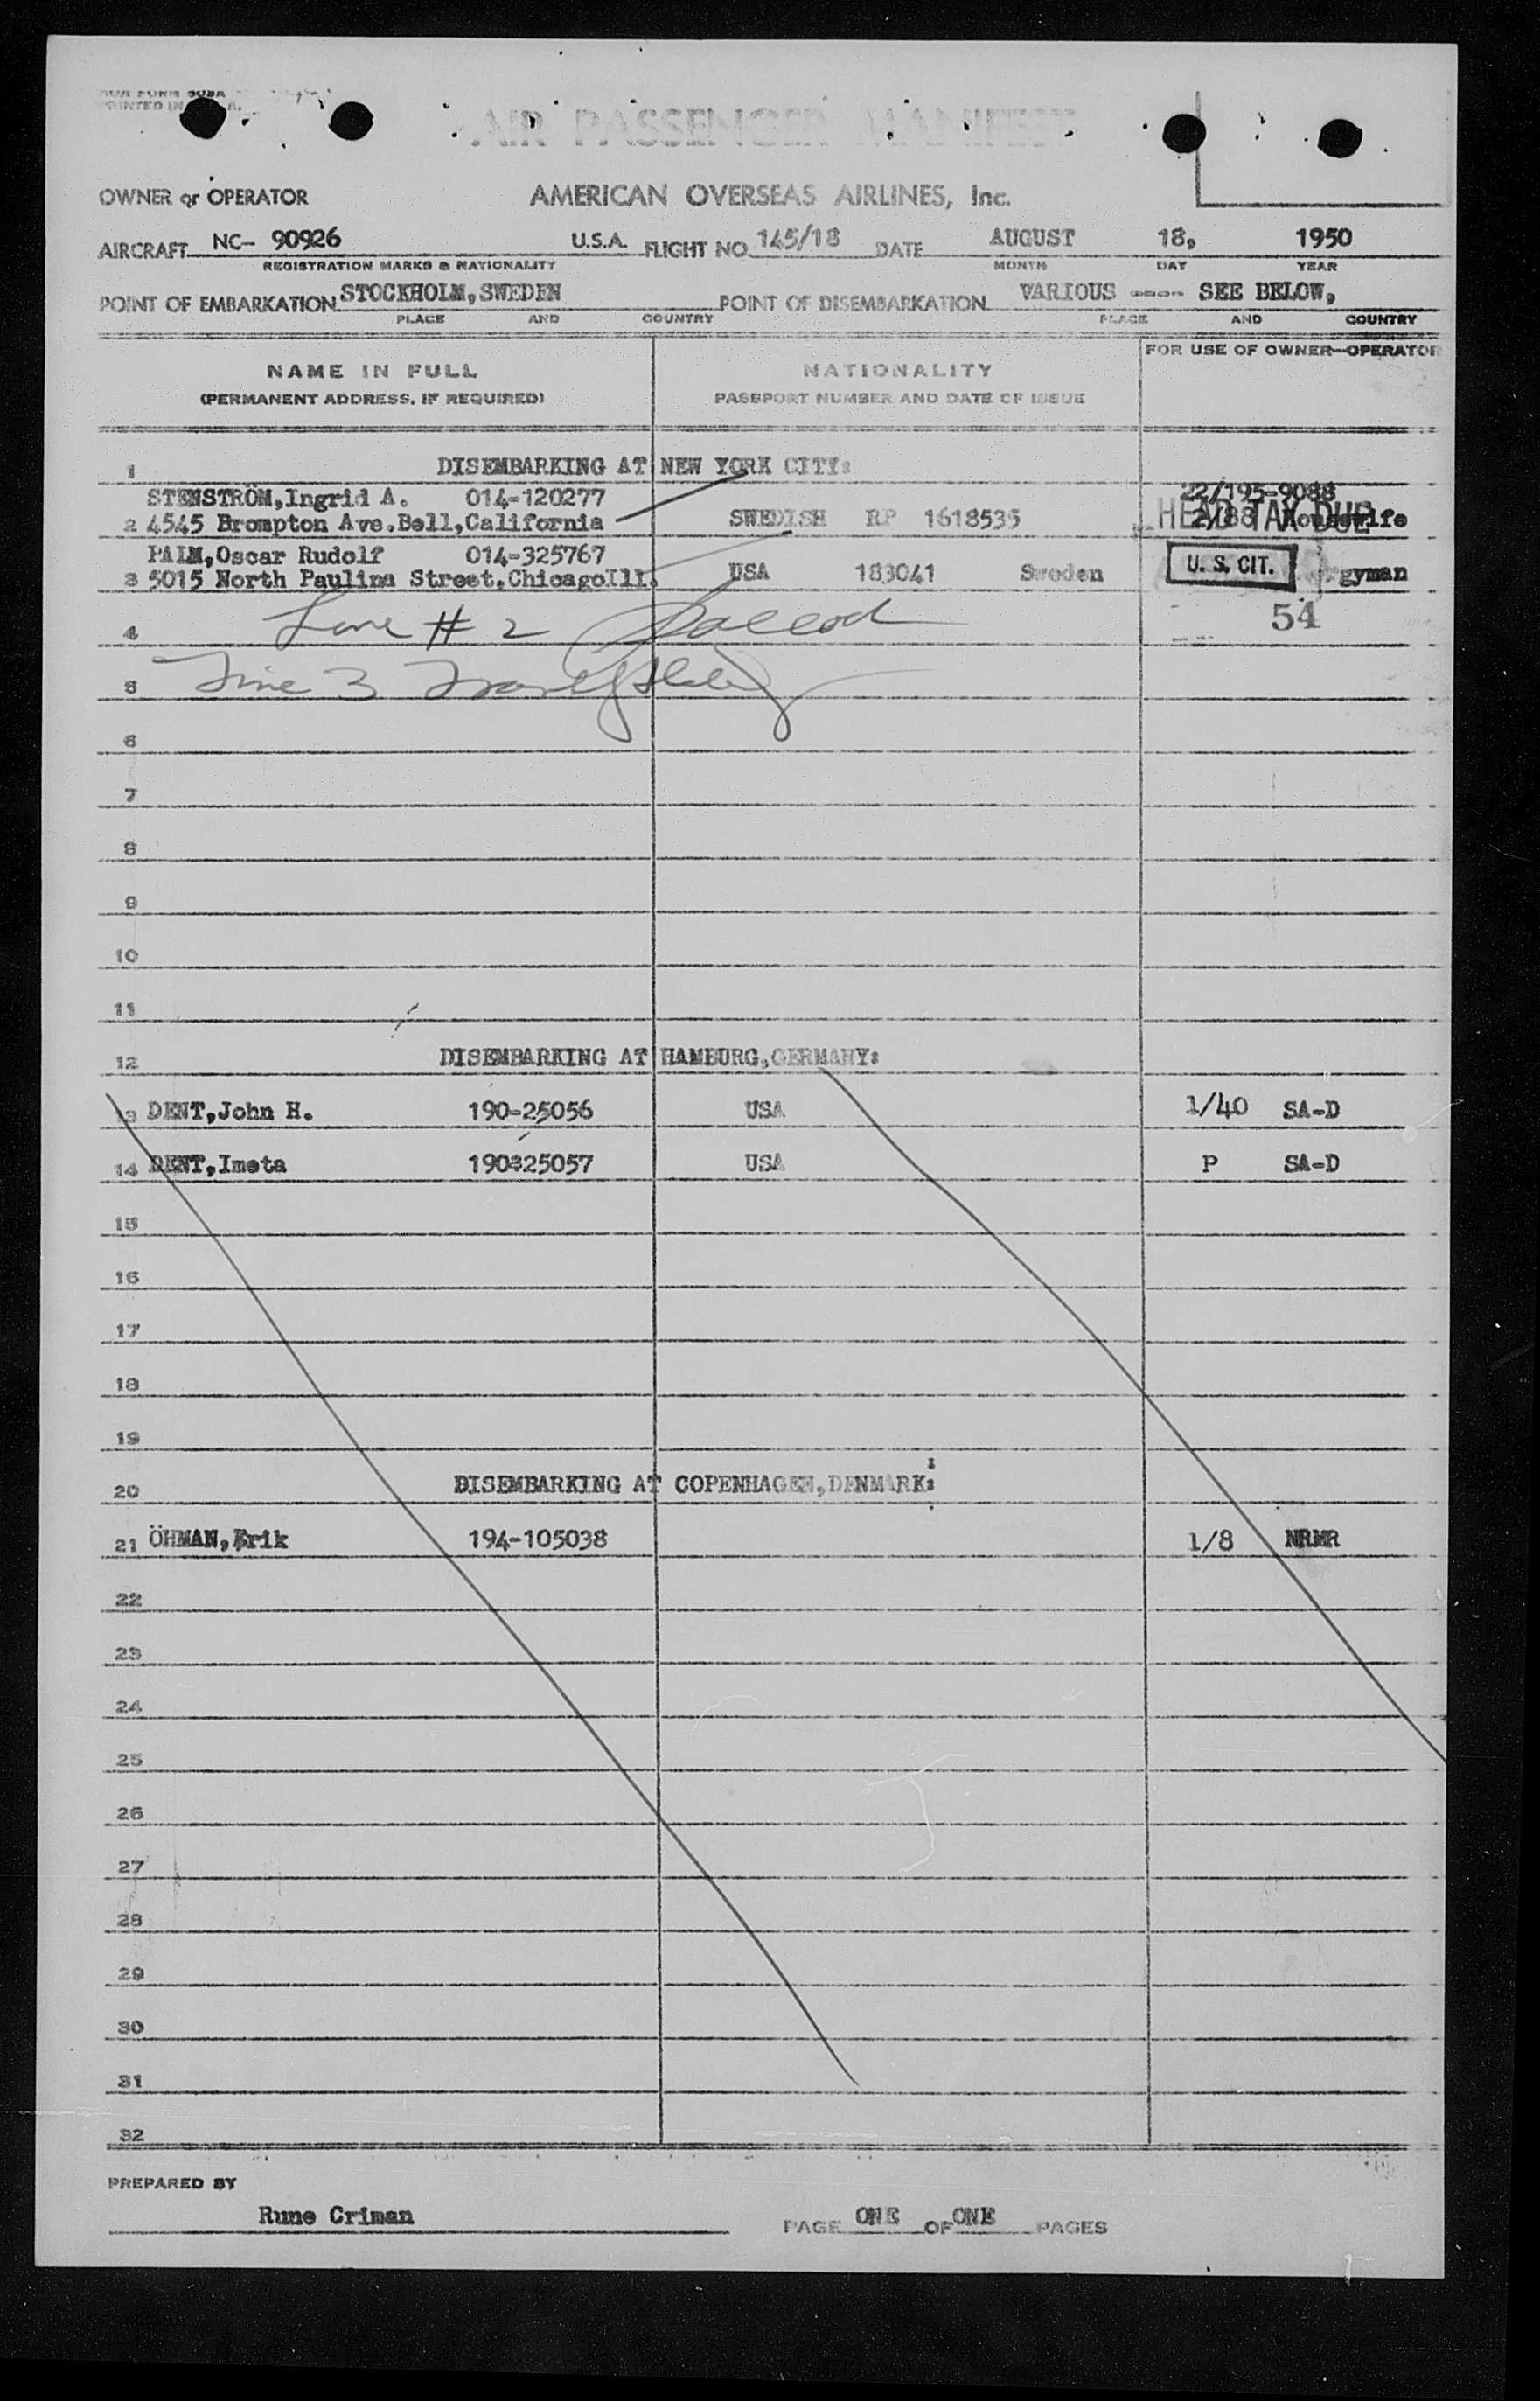 AOA FORM 503A
PRINTED IN
AIR PASSENGER MANIFEST
OWNER or OPERATOR AMERICAN OVERSEAS AIRLINES, Inc.
AIRCRAFT NC- 90926 U.S.A. FLIGHT NO. 145/18 DATE AUGUST 18, 1950
REGISTRATION MARKS & NATIONALITY MONTH DAY YEAR
POINT OF EMBARKATION STOCKHOLM,SWEDEN POINT OF DISEMBARKATION VARIOUS ---- SEE BELOW,
PLACE AND COUNTRY PLACE AND COUNTRY
NAME IN FULL NATIONALITY FOR USE OF OWNER—OPERATOR
(PERMANENT ADDRESS, IF REQUIRED) PASSPORT NUMBER AND DATE OF ISSUE
1 DISEMBARKING AT NEW YORK CITY:
STENSTRÖM,Ingrid A. 014-120277 22/195-9088
2 4545 Brompton Ave.Bell,California SWEDISH RP 1618535 HEAD TAX DUE 2/88 Housewife
PALM,Oscar Rudolf 014-325767
3 5015 North Paulina Street,ChicagoIll. USA 183041 Sweden U. S. CIT. gyman
4 Line # 2 54
5 Line 3
6
7
8
9
10
11
12 DISEMBARKING AT HAMBURG,GERMANY:
13 DENT,John H. 190-25056 USA 1/40 SA-D
14 DENT,Imeta 190-25057 USA P SA-D
15
16
17
18
19
20 DISEMBARKING AT COPENHAGEN,DENMARK:
21 ÖHMAN,Erik 194-105038 1/8 NRMR
22
23
24
25
26
27
28
29
30
31
32
PREPARED BY
Rune Criman PAGE ONE OF ONE PAGES